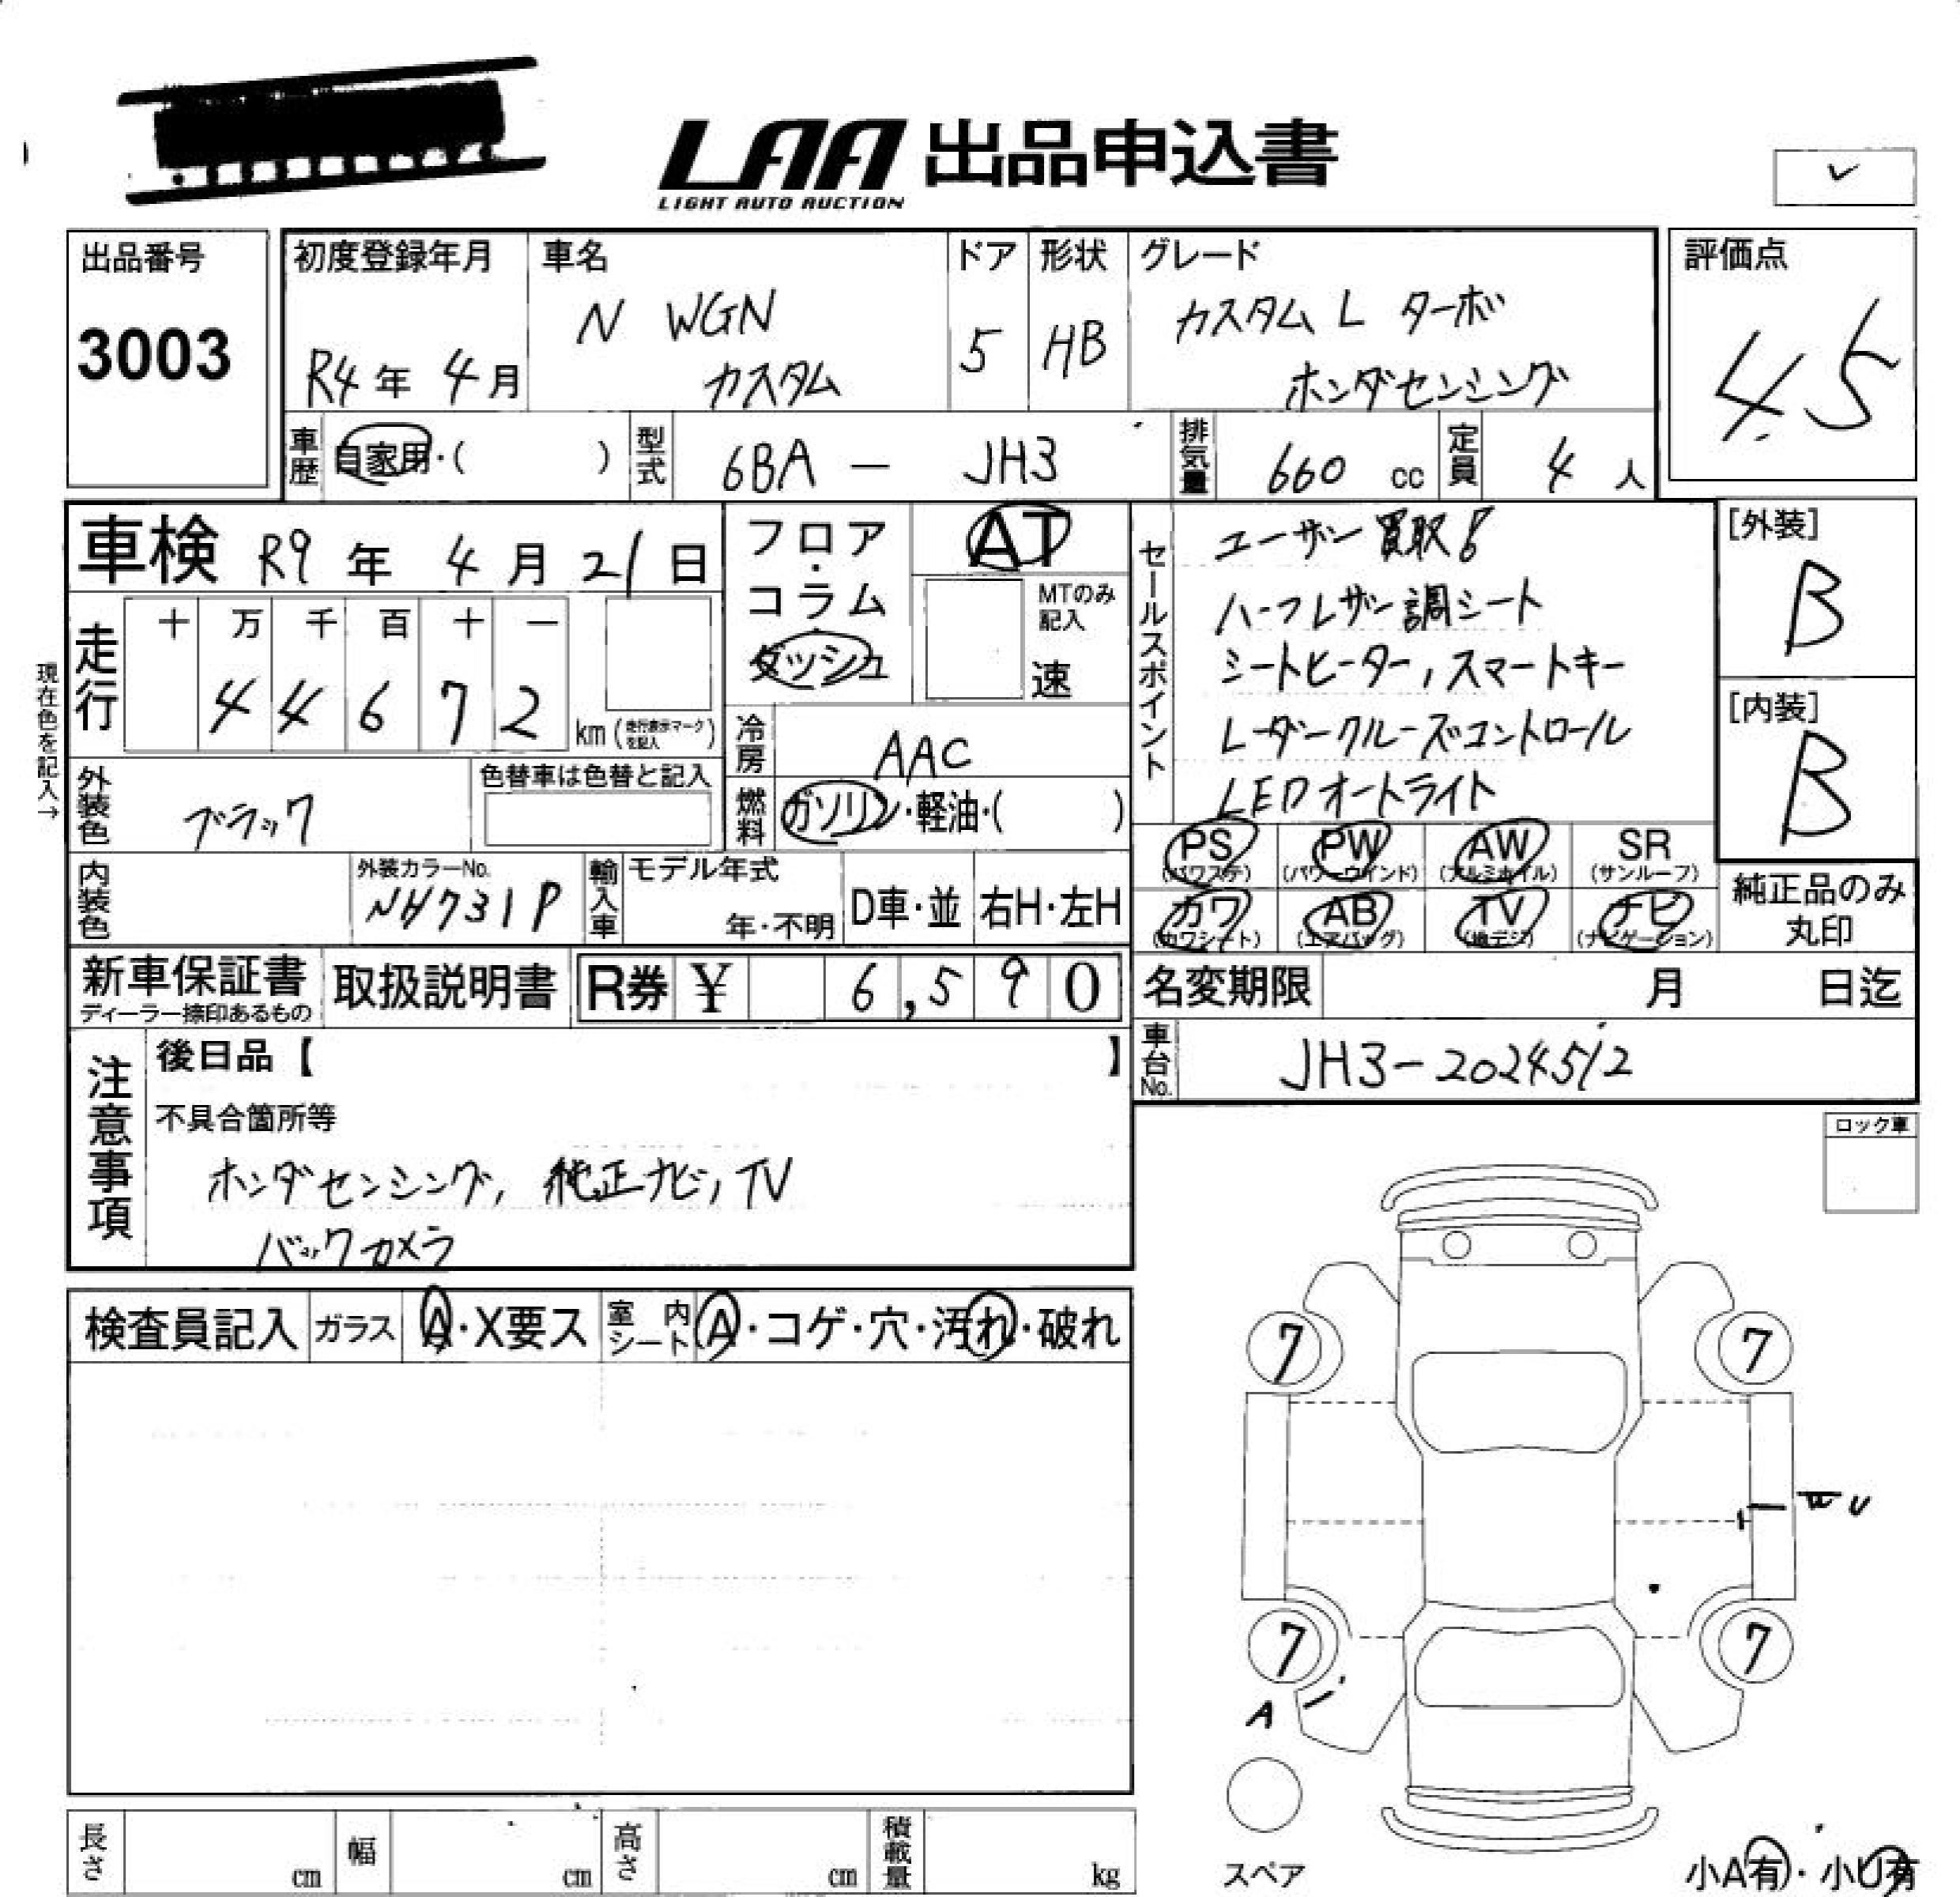 LAA 出品申込書
LIGHT AUTO AUCTION
出品番号
3003
初度登録年月
R4年 4月
車名
N WGN
カスタム
ドア
5
形状
HB
グレード
カスタム L ターボ
ホンダセンシング
評価点
4.5
車歴 自家用・( )
型式 6BA - JH3
排気量 660 cc
定員 4 人
車検 R9 年 4 月 21 日
フロア・コラム
ダッシュ
AT
MTのみ記入
速
現在色を記入→
走行
十 万 千 百 十 一
4 4 6 7 2
km (走行表示マークを記入)
冷房 AAC
燃料 ガソリン・軽油・( )
外装色 ブラック
色替車は色替と記入
内装色
外装カラーNo.
NH731P
輸入車
モデル年式
年・不明
D車・並
右H・左H
セールスポイント
ユーザー買取!
ハーフレザー調シート
シートヒーター, スマートキー
レーダークルーズコントロール
LEDオートライト
[外装]
B
[内装]
B
PS (パワステ)
PW (パワーウインド)
AW (アルミホイル)
SR (サンルーフ)
カワ (カワシート)
AB (エアバッグ)
TV (地デジ)
ナビ (ナビゲーション)
純正品のみ
丸印
新車保証書
ディーラー捺印あるもの
取扱説明書
R券 ¥ 6,590
名変期限 月 日迄
車台No. JH3-2024512
注意事項
後日品【 】
不具合箇所等
ホンダセンシング, 純正ナビ, TV
バックカメラ
ロック車
検査員記入
ガラス A・X要ス
室内シート A・コゲ・穴・汚れ・破れ
7 7
U
7 7
A
スペア
小A有・小U有
長さ cm
幅 cm
高さ cm
積載量 kg